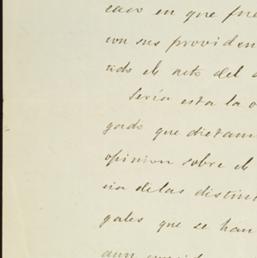 caso en que fue
con sus providen
tido el acto del
Seria esta la o
gado que dictam
opinion sobre el
cia de las distin
gales que se han